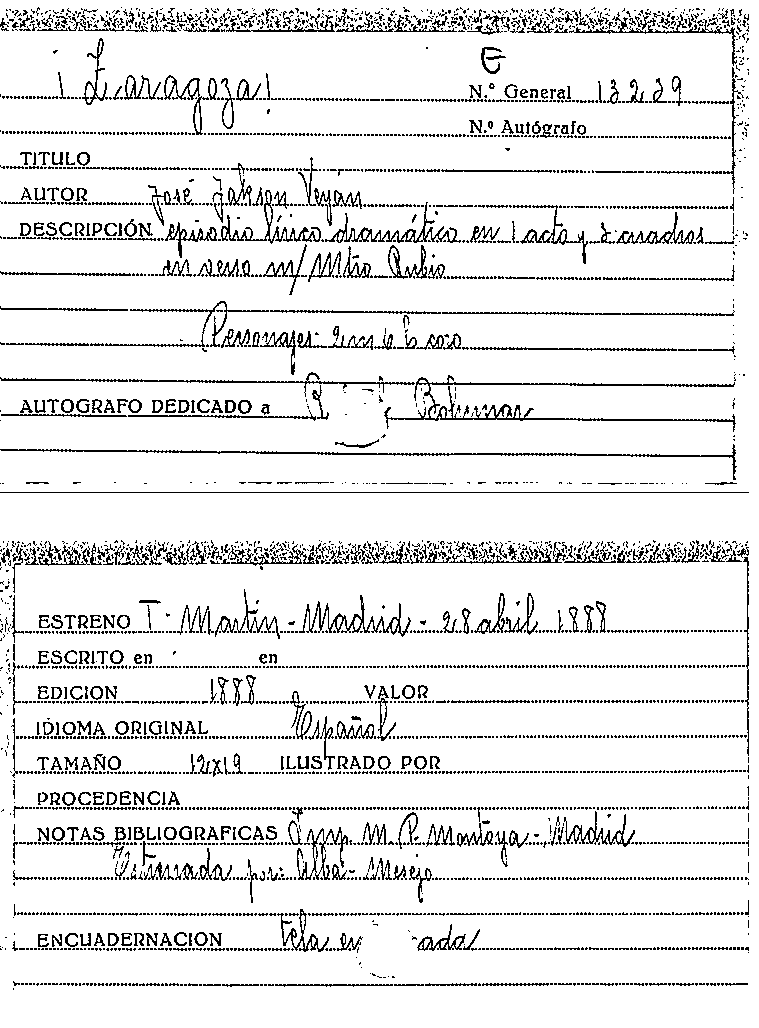 E
¡Zaragoza!
N.º General 13239
N.º Autógrafo
TITULO
AUTOR José Jakson Veyán
DESCRIPCIÓN episodio lírico dramático en 1 acto y 2 cuadros
en verso m/ Mtro Rubio
Personajes: 2 m 6 h coro
AUTOGRAFO DEDICADO a R
ESTRENO T. Martín - Madrid - 28 abril 1888
ESCRITO en en
EDICION 1888 VALOR
IDIOMA ORIGINAL Español
TAMAÑO 12x19 ILUSTRADO POR
PROCEDENCIA
NOTAS BIBLIOGRAFICAS Imp. M. P. Montoya - Madrid
Estrenada por: Alba - Mesejo
ENCUADERNACION tela en ada